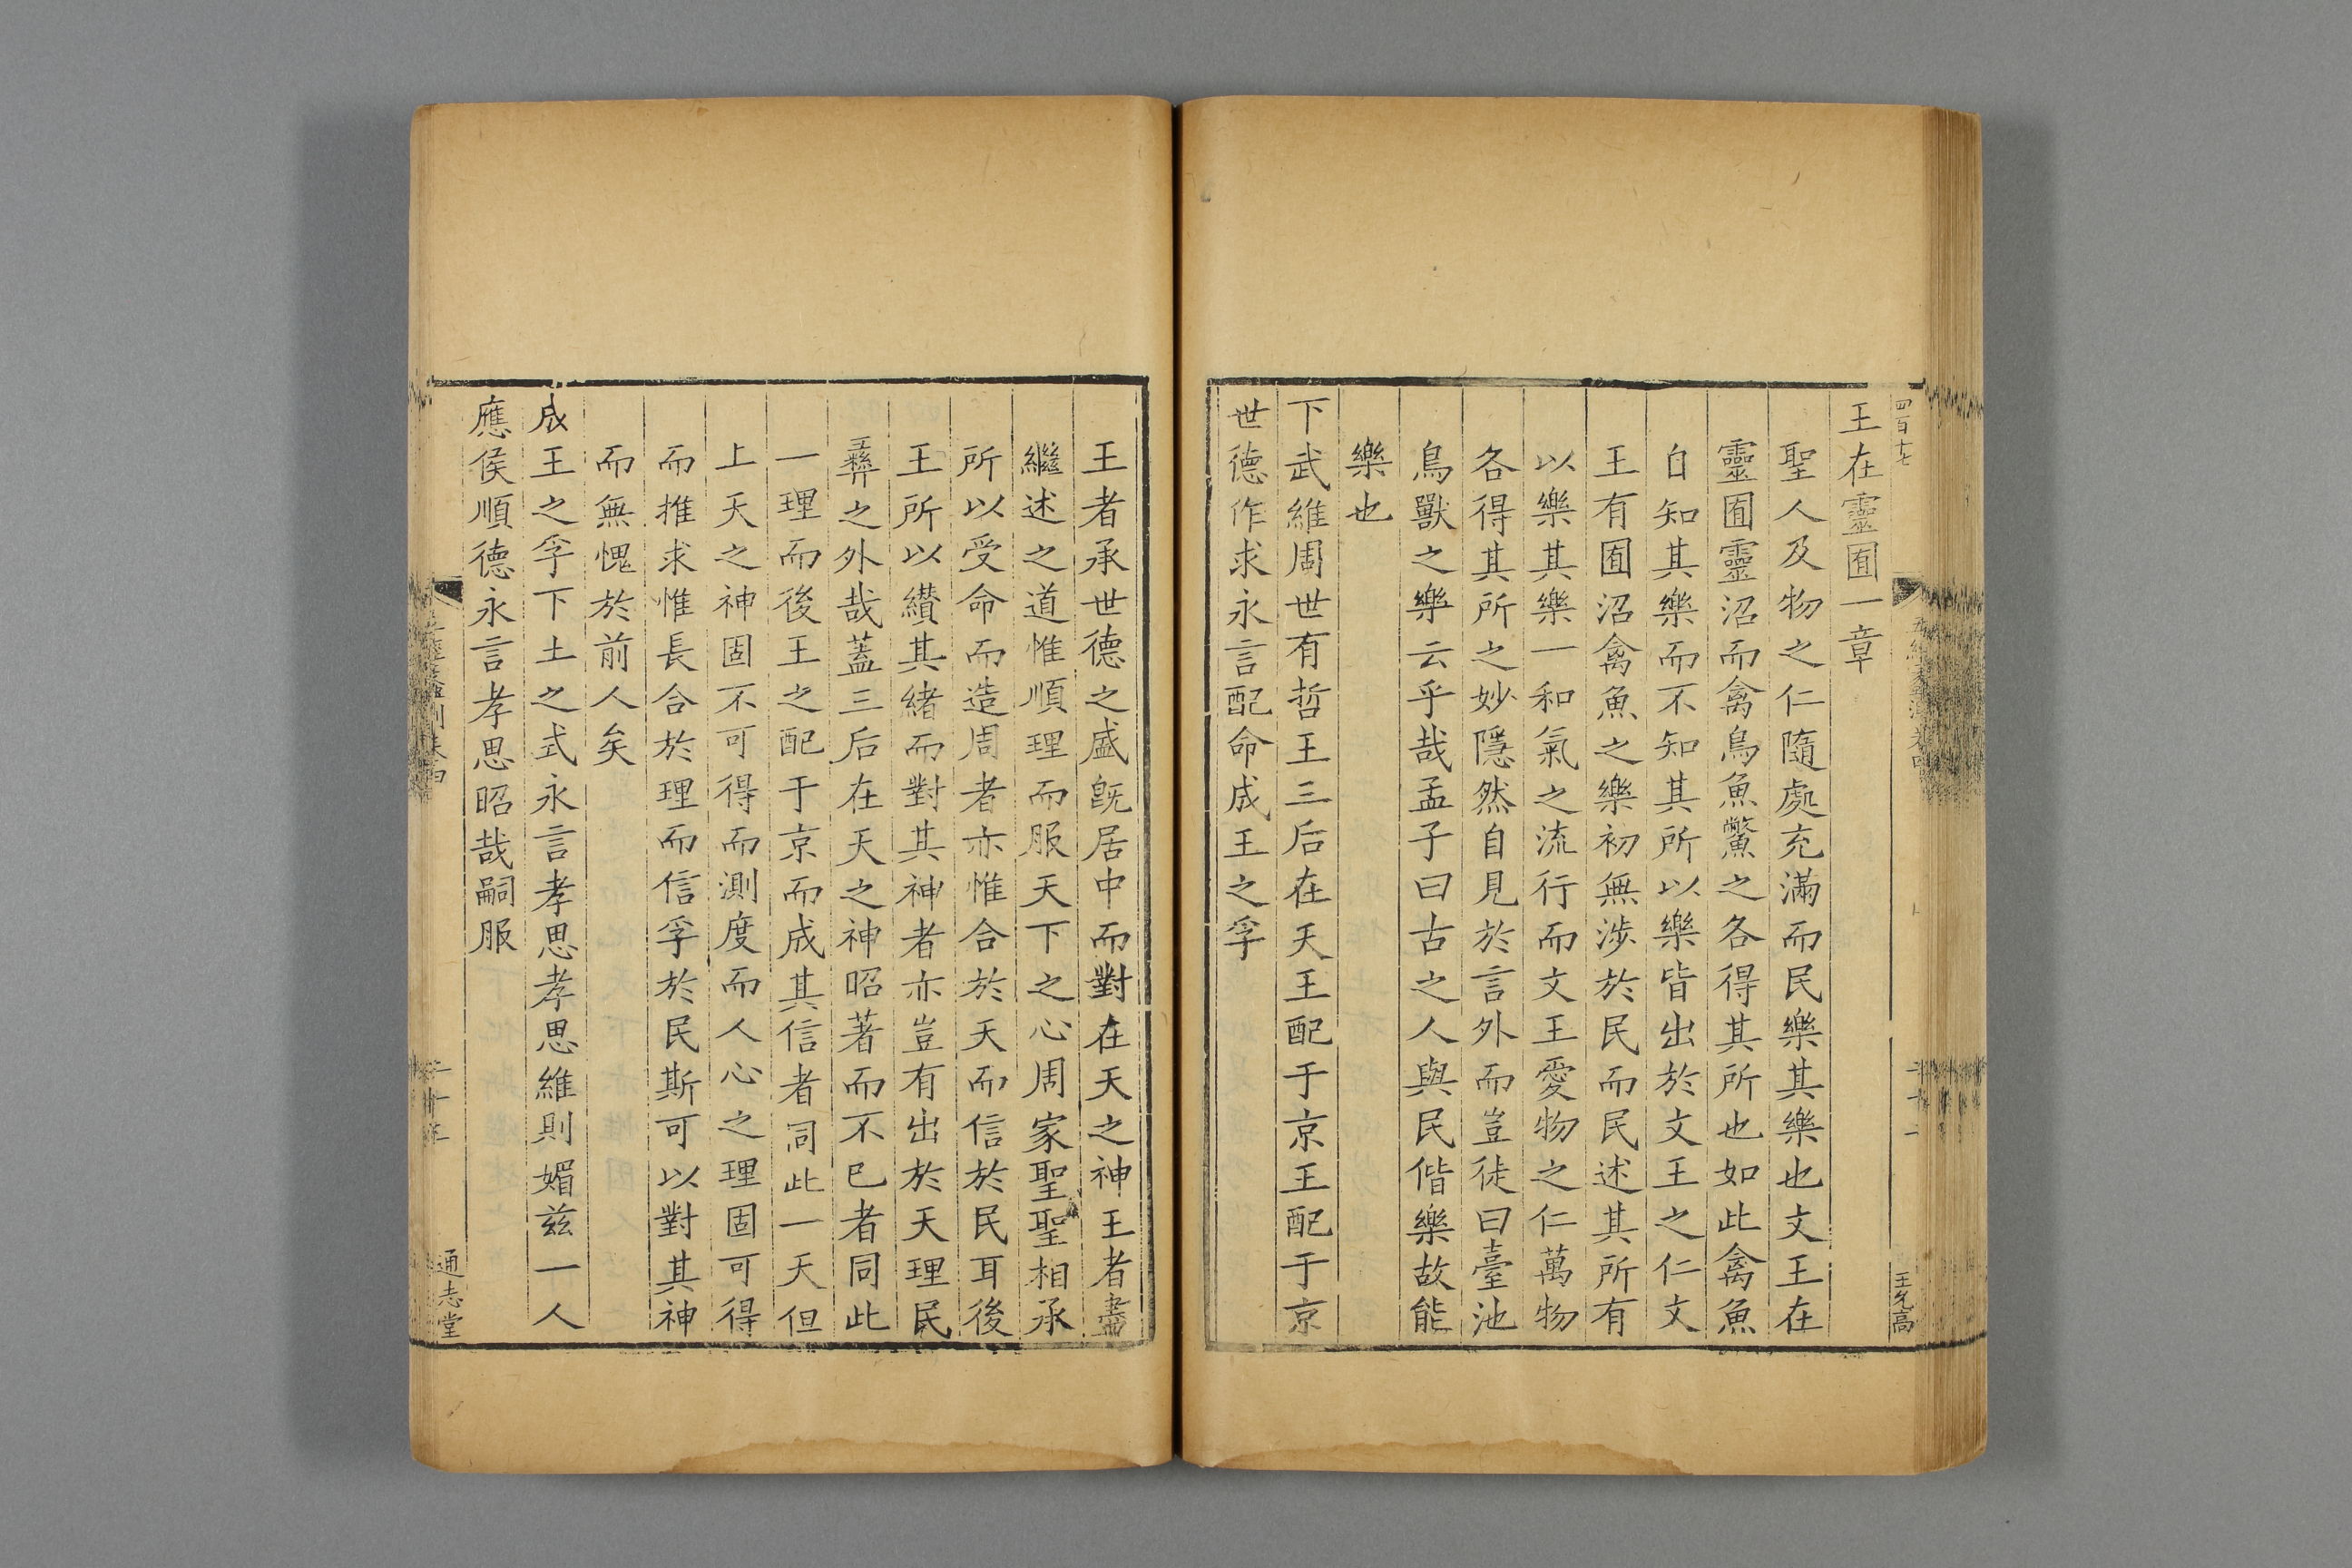 四百十七
王在靈囿一章
聖人及物之仁隨處充滿而民樂其樂也文王在
靈囿靈沼而禽鳥魚鱉之各得其所也如此禽魚
自知其樂而不知其所以樂皆出於文王之仁文
王有囿沼禽魚之樂初無涉於民而民述其所有
以樂其樂一和氣之流行而文王愛物之仁萬物
各得其所之妙隱然自見於言外而豈徒曰臺池
鳥獸之樂云乎哉孟子曰古之人與民偕樂故能
樂也
下武維周世有哲王三后在天王配于京王配于京
世德作求永言配命成王之孚
王者承世德之盛旣居中而對在天之神王者盡
繼述之道惟順理而服天下之心周家聖聖相承
所以受命而造周者亦惟合於天而信於民耳後
王所以纘其緒而對其神者亦豈有出於天理民
彞之外哉蓋三后在天之神昭著而不已者同此
一理而後王之配于京而成其信者同此一天但
上天之神固不可得而測度而人心之理固可得
而推求惟長合於理而信孚於民斯可以對其神
而無愧於前人矣
成王之孚下土之式永言孝思孝思維則媚兹一人
應侯順德永言孝思昭哉嗣服
通志堂